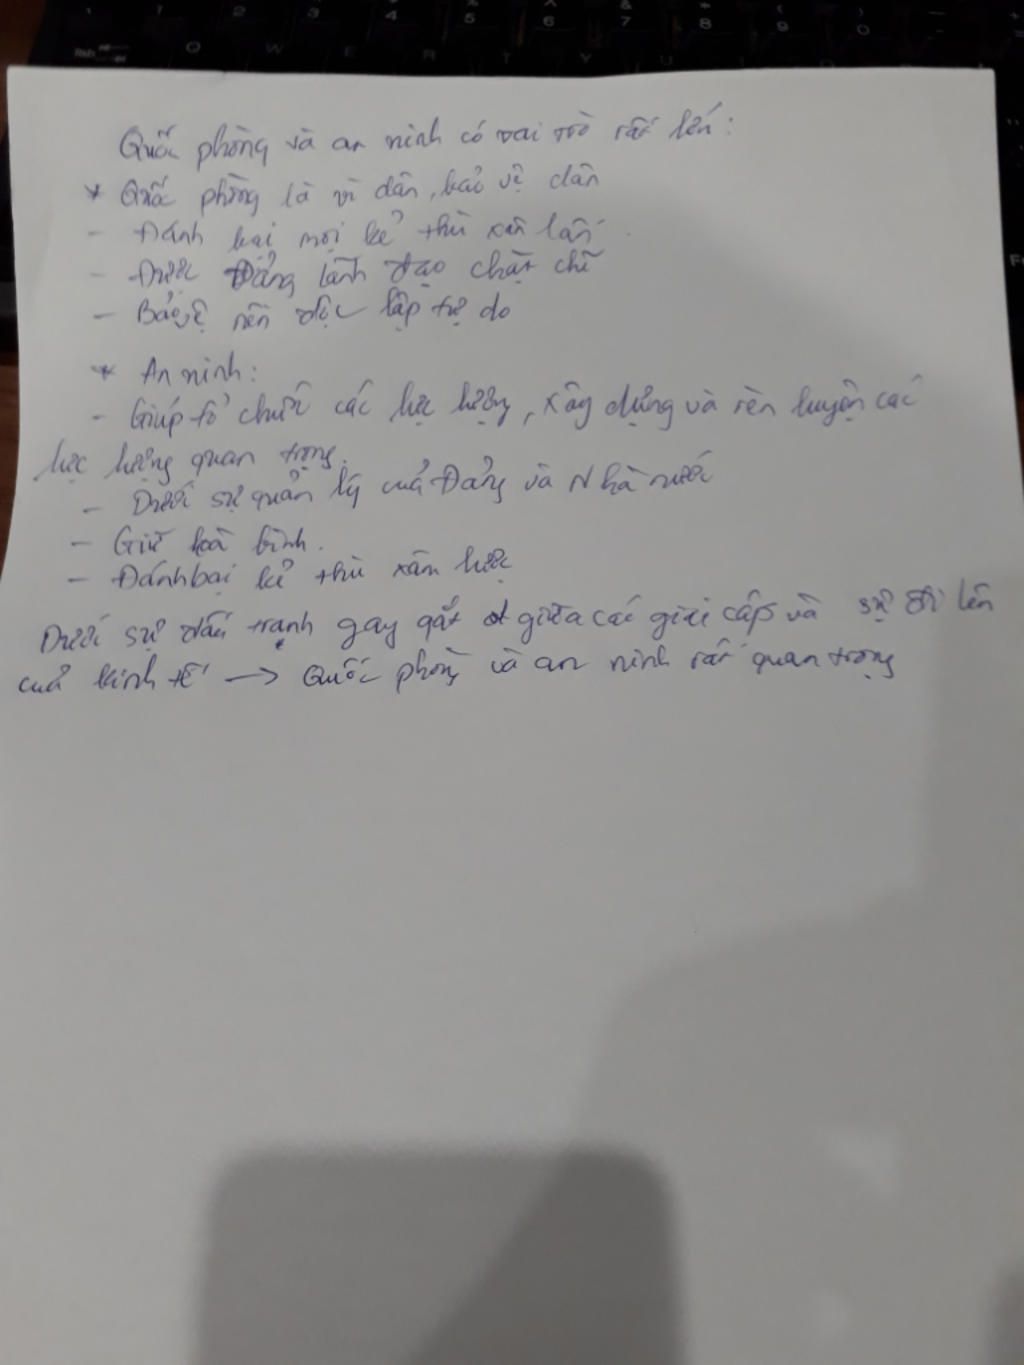 Quốc phòng và an ninh có vai trò rất lớn:
* Quốc phòng là vì dân, bảo vệ dân
- Đánh bại mọi kẻ thù xâm lấn.
- Được Đảng lãnh đạo chặt chẽ
- Bảo vệ nền độc lập tự do
* An ninh:
- Giúp tổ chức các lực lượng, xây dựng và rèn luyện các
lực lượng quan trọng.
- Dưới sự quản lý của Đảng và Nhà nước
- Giữ hoà bình.
- Đánh bại kẻ thù xâm lược
Dưới sự đấu tranh gay gắt giữa các giai cấp và sự đi lên
của kinh tế → Quốc phòng và an ninh rất quan trọng